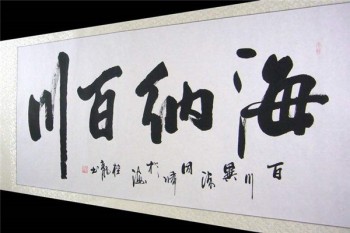 海纳百川
百川異源 同歸於海 程龍書